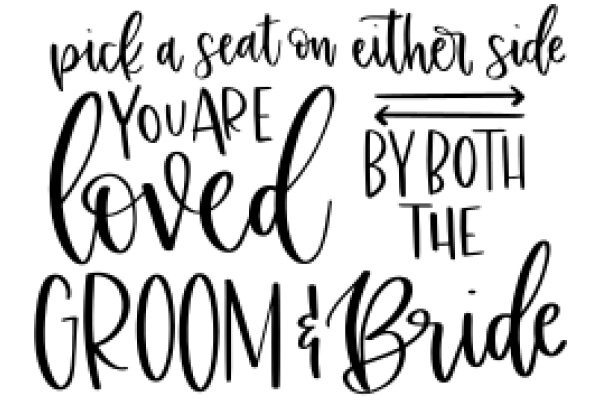 pick a seat on either side
YOU ARE
loved
BY BOTH
THE
GROOM & Bride